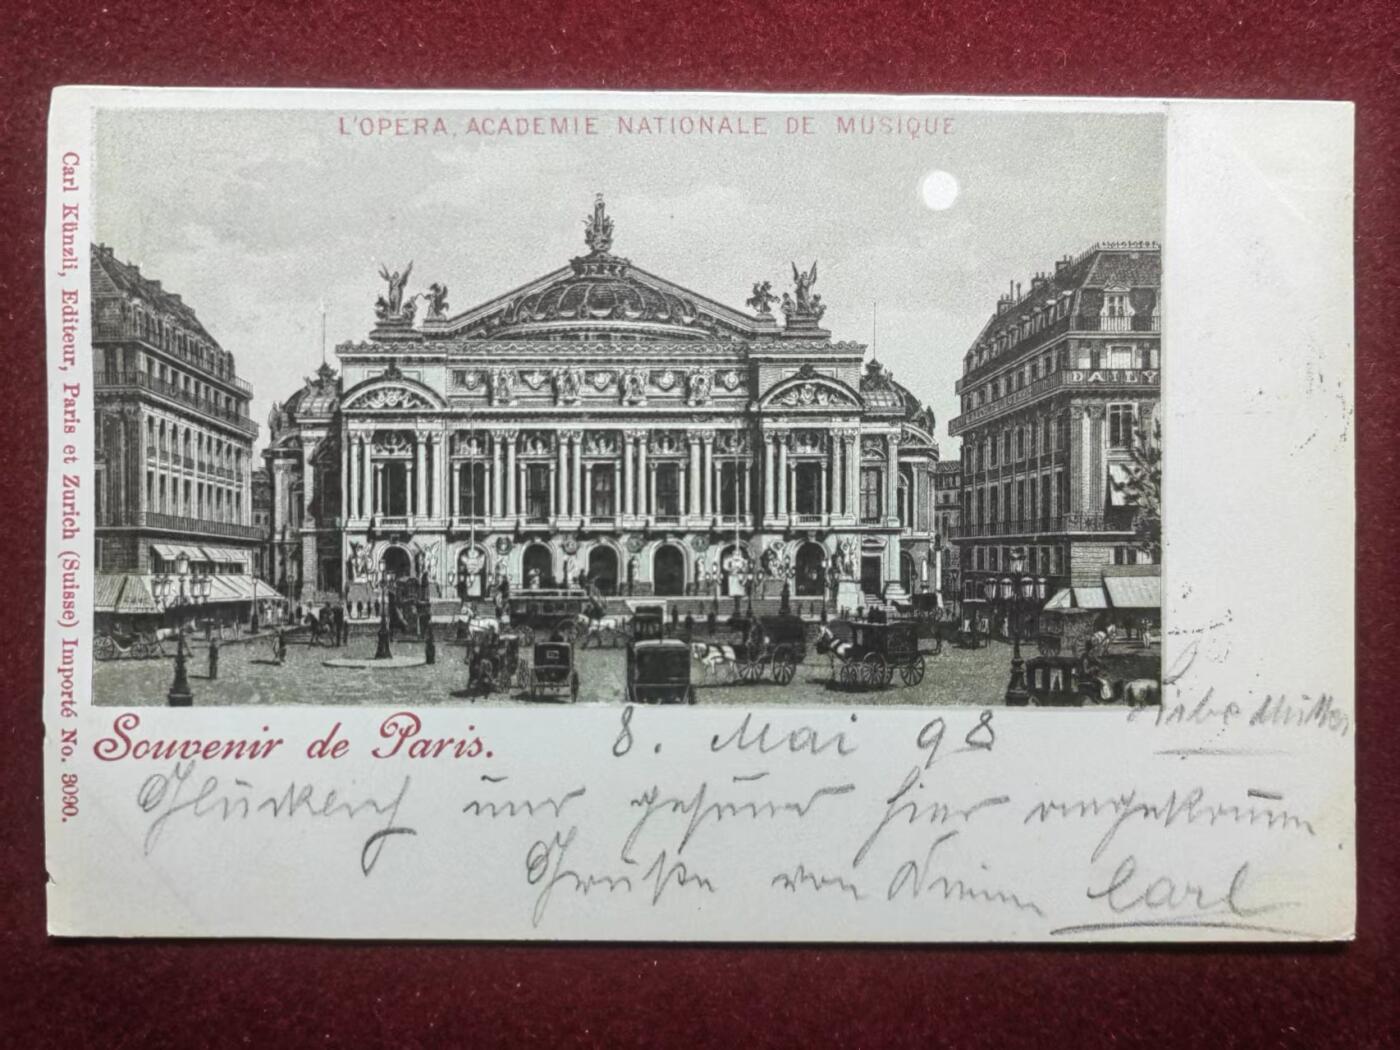 L'OPERA, ACADEMIE NATIONALE DE MUSIQUE
DAILY
Carl Künzli, Editeur, Paris et Zurich (Suisse) Importé No. 3090.
Souvenir de Paris.
8. Mai 98
Liebe Mutter
Glücklich und gesund hier angekommen
Grüße von Deinem Carl